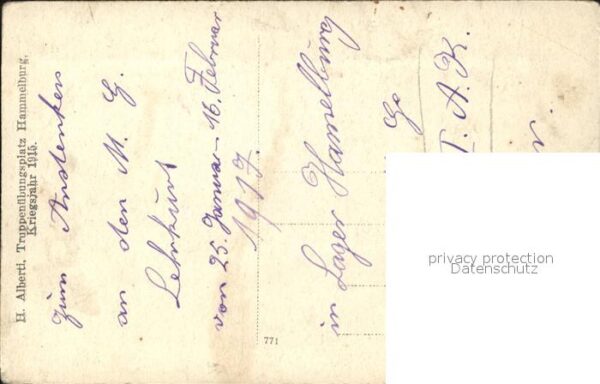 H. Alberti, Truppenübungsplatz Hammelburg.
Kriegsjahr 1915.
zum Andenken
an den M. G.
Lehrkurs
von 25. Januar – 16. Februar
1917.
in Lager Hamelburg
771
privacy protection
Datenschutz